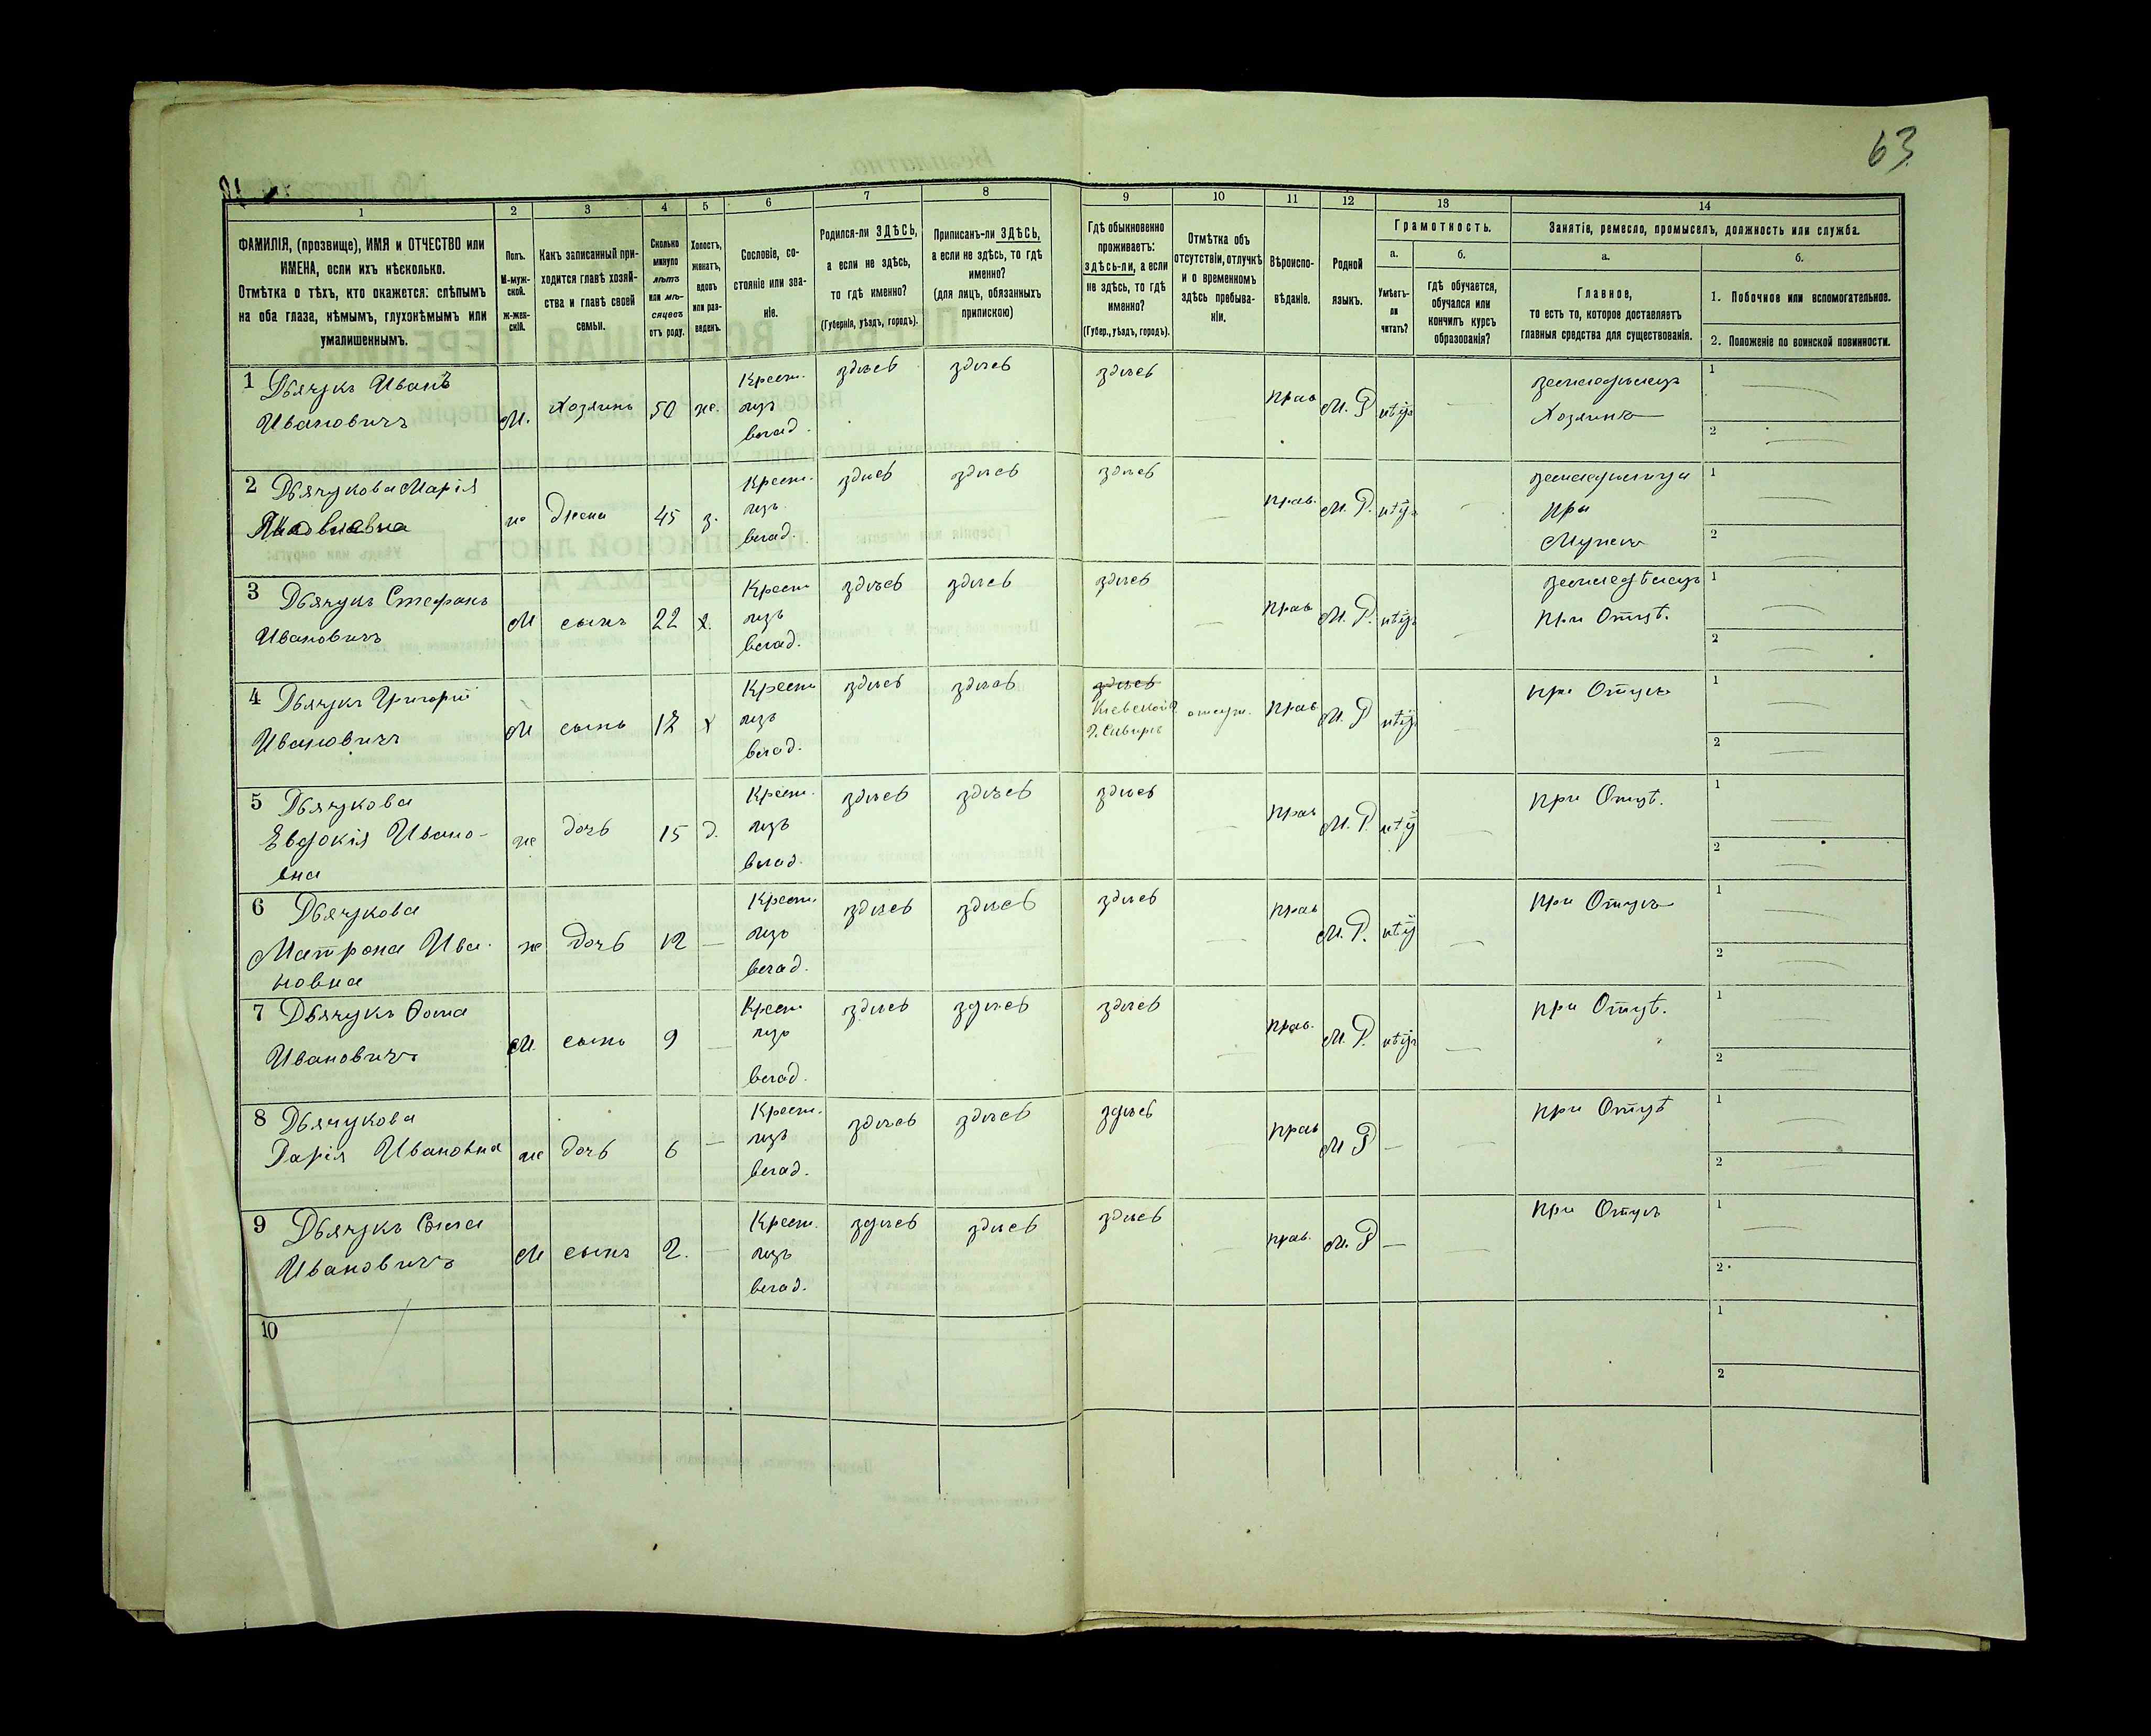 63
1 2 3 4 5 6 7 8 9 10 11 12 13 14
ФАМИЛІЯ, (прозвище), ИМЯ и ОТЧЕСТВО или
ИМЕНА, если ихъ нѣсколько.
Отмѣтка о тѣхъ, кто окажется: слѣпымъ
на оба глаза, нѣмымъ, глухонѣмымъ или
умалишеннымъ.
Полъ.
М-муж-
ской.
ж-жен-
скій.
Какъ записанный при-
ходится главѣ хозяй-
ства и главѣ своей
семьи.
Сколько
минуло
лѣтъ
или мѣ-
сяцевъ
отъ роду.
Холостъ,
женатъ,
вдовъ
или раз-
веденъ.
Сословіе, со-
стояніе или зва-
ніе.
Родился-ли ЗДѢСЬ,
а если не здѣсь,
то гдѣ именно?
(Губернія, уѣздъ, городъ).
Приписанъ-ли ЗДѢСЬ,
а если не здѣсь, то гдѣ
именно?
(для лицъ, обязанныхъ
припискою)
Гдѣ обыкновенно
проживаетъ:
здѣсь-ли, а если
не здѣсь, то гдѣ
именно?
(Губер., уѣздъ, городъ).
Отмѣтка объ
отсутствіи, отлучкѣ
и о временномъ
здѣсь пребыва-
ніи.
Вѣроиспо-
вѣданіе.
Родной
языкъ.
Грамотность.
а.
Умѣетъ-
ли
читать?
б.
гдѣ обучается,
обучался или
кончилъ курсъ
образованія?
Занятіе, ремесло, промыселъ, должность или служба.
а.
Главное,
то есть то, которое доставляетъ
главныя средства для существованія.
б.
1. Побочное или вспомогательное.
2. Положеніе по воинской повинности.
1 Дьячукъ Иванъ
Ивановичъ
М. Хозяинъ 50 ж.
Крест.
изъ
влад.
здѣсь здѣсь здѣсь
прав М. Р нѣтъ
земледѣлецъ
Хозяинъ
1
2
2 Дьячукова Марія
ж жена 45 з.
Крест.
изъ
влад.
здѣсь здѣсь здѣсь
прав. М. Р. нѣтъ
при
Мужѣ
1
2
3 Дьячукъ Стефанъ
Ивановичъ
М сынъ 22 х.
Крест
изъ
влад.
здѣсь здѣсь здѣсь
прав М. Р. нѣтъ
земледѣлецъ
при Отцѣ.
1
2
4 Дьячукъ Григорій
Ивановичъ
М сынъ х
Крест
изъ
влад.
здѣсь здѣсь здѣсь
Кіевской
прав М. Р нѣтъ
при Отцѣ
1
2
5 Дьячукова
Евдокія Ивано-
вна
ж дочь 15 д.
Крест.
изъ
влад.
здѣсь здѣсь здѣсь
прав М. Р. нѣтъ
при Отцѣ.
1
2
6 Дьячукова
Матрона Ива-
новна
ж дочь 12 —
Крест.
изъ
влад.
здѣсь здѣсь здѣсь
прав М. Р. нѣтъ
при Отцѣ
1
2
7 Дьячукъ Ѳома
Ивановичъ
М. сынъ 9 —
Крест
изъ
влад.
здѣсь здѣсь здѣсь
прав. М. Р. нѣтъ
при Отцѣ.
1
2
8 Дьячукова
Дарія Ивановна
ж дочь 6 —
Крест.
изъ
влад.
здѣсь здѣсь здѣсь
прав М Р —
при Отцѣ
1
2
9 Дьячукъ Сава
Ивановичъ
М сынъ 2. —
Крест.
изъ
влад.
здѣсь здѣсь здѣсь
прав. М. Р —
при Отцѣ
1
2
10
1
2